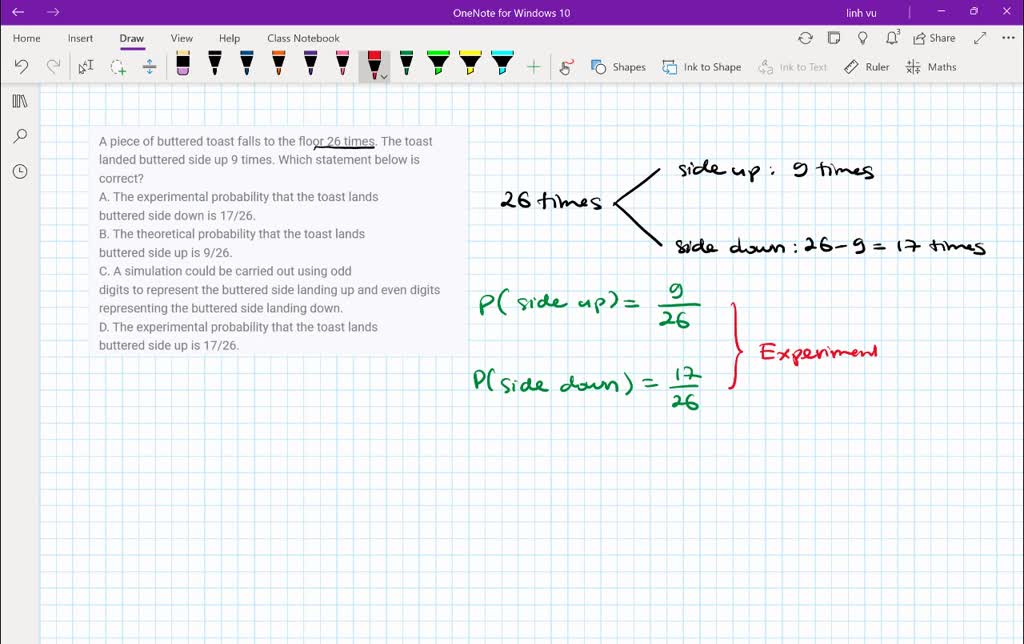 OneNote for Windows 10
linh vu
Home Insert Draw View Help Class Notebook
3
Share
Shapes
Ink to Shape
Ink to Text
Ruler
Maths
A piece of buttered toast falls to the floor 26 times. The toast
landed buttered side up 9 times. Which statement below is
correct?
A. The experimental probability that the toast lands
buttered side down is 17/26.
B. The theoretical probability that the toast lands
buttered side up is 9/26.
C. A simulation could be carried out using odd
digits to represent the buttered side landing up and even digits
representing the buttered side landing down.
D. The experimental probability that the toast lands
buttered side up is 17/26.
side up : 9 times
26 times
side down : 26 - 9 = 17 times
P( side up) = 9/26
Experiment
P( side down) = 17/26